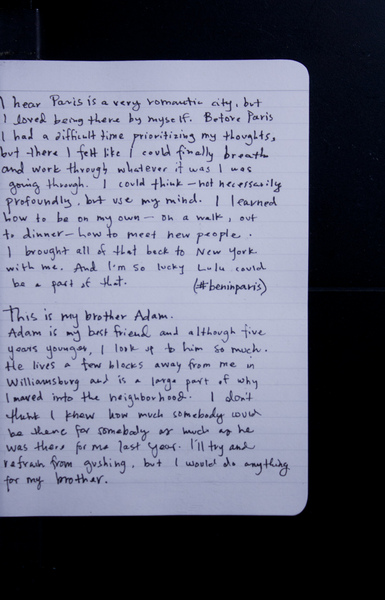 I hear Paris is a very romantic city, but
I loved being there by myself. Before Paris
I had a difficult time prioritizing my thoughts,
but there I felt like I could finally breath
and work through whatever it was I was
going through. I could think – not necessarily
profoundly, but use my mind. I learned
how to be on my own – on a walk, out
to dinner – how to meet new people.
I brought all of that back to New York
with me. And I'm so lucky Lulu could
be a part of that. (#beninparis)
This is my brother Adam.
Adam is my best friend and although five
years younger, I look up to him so much.
He lives a few blocks away from me in
Williamsburg and is a large part of why
I moved into the neighborhood. I don't
think I knew how much somebody could
be there for somebody as much as he
was there for me last year. I'll try and
refrain from gushing, but I would do anything
for my brother.